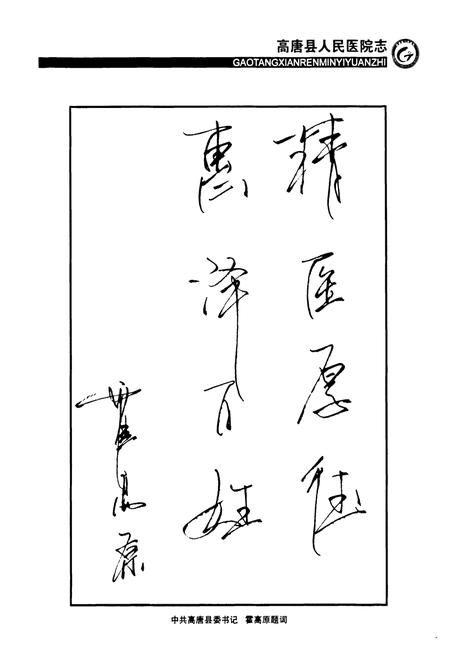 高唐县人民医院志
GAOTANGXIANRENMINYIYUANZHI
精医厚德
惠泽百姓
霍高原
中共高唐县委书记 霍高原题词